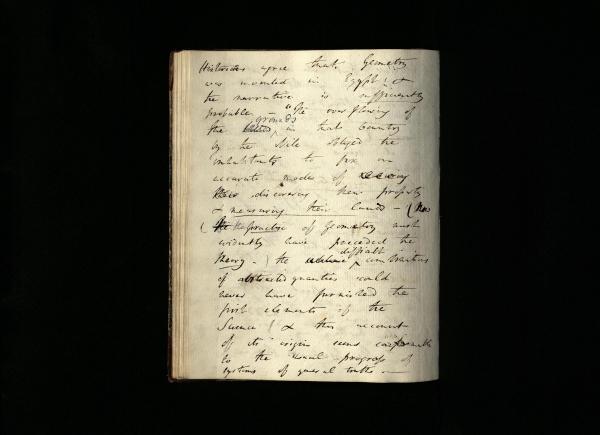 Historians agree that Geometry
was invented in Egypt! &
the narrative is sufficiently
probable — "The overflowing of
the grounds in that Country
by the Nile obliged the
inhabitants to fix on
accurate modes of
discovering their property
& measuring their lands — (
the practise of Geometry must
evidently have preceded the
theory. — ) the difficult combinations
of abstracted quantities could
never have furnished the
first elements of the
Science! & this account
of its origin seems conformable
to the usual progress of
systems of general truths. —